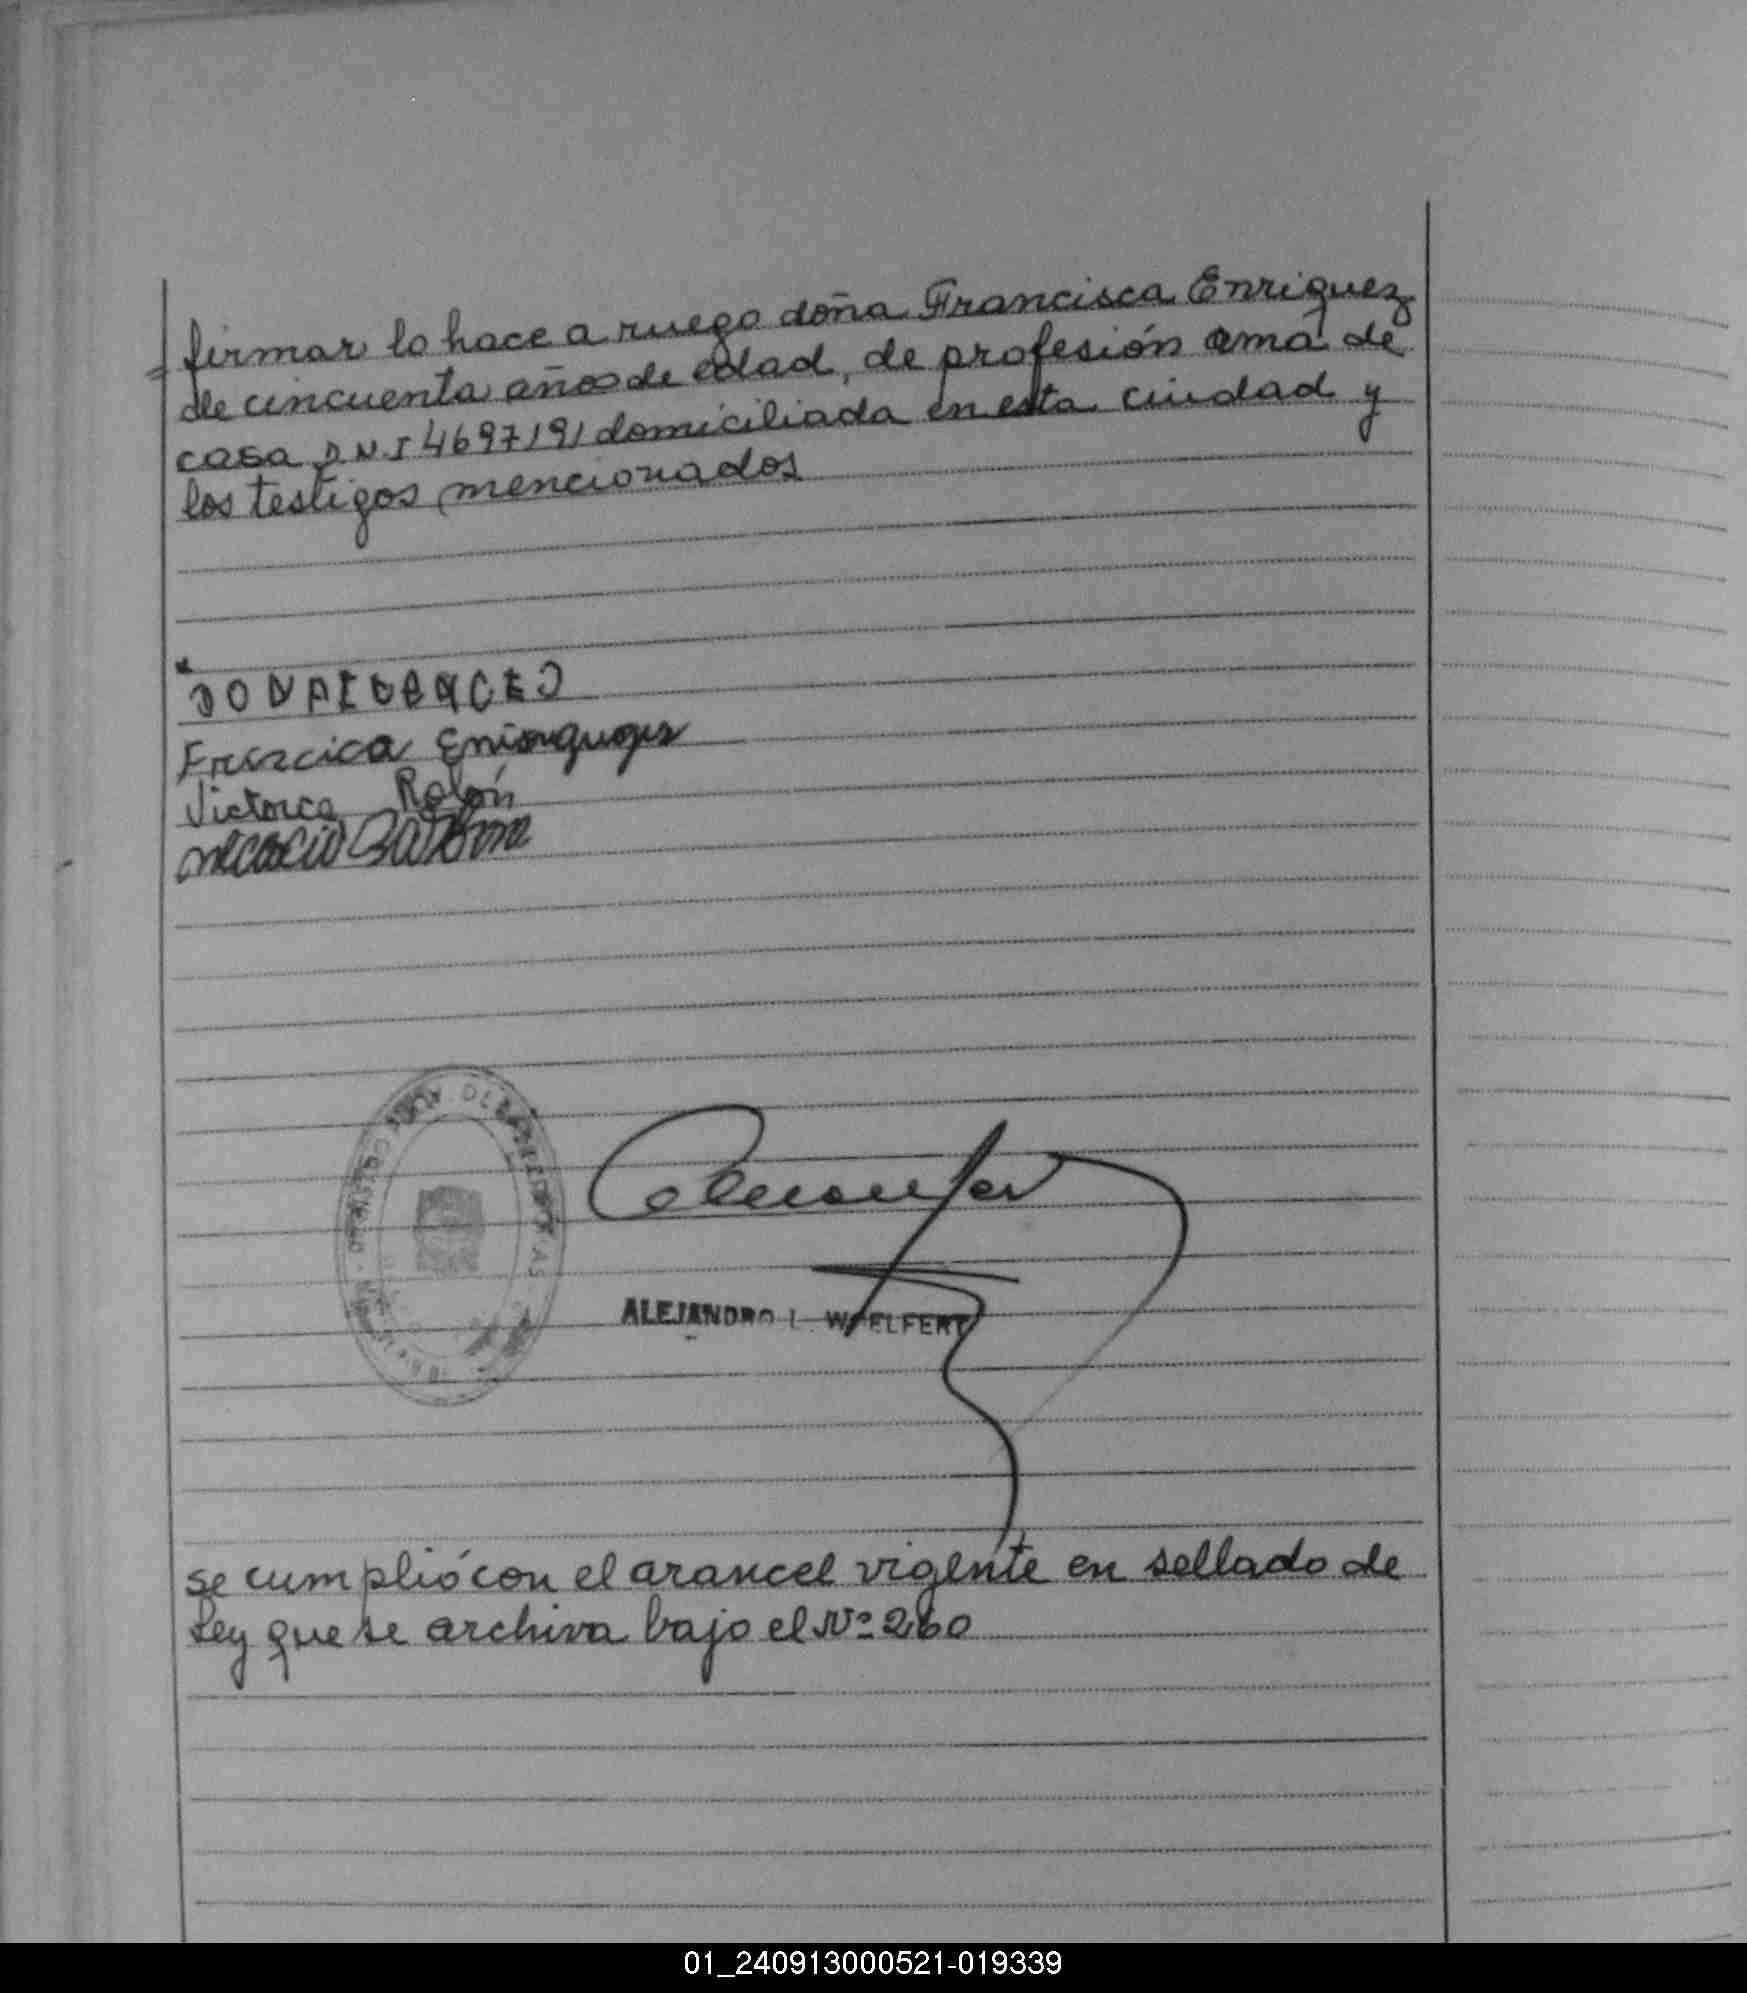 firmar lo hace a ruego doña Francisca Enriquez
de cincuenta años de edad, de profesión ama de
casa D N I 4697191 domiciliada en esta ciudad y
los testigos mencionados
Victorca Rolón
ALEJANDRO L. WOELFERT
se cumplió con el arancel vigente en sellado de
Ley que se archiva bajo el Nº 260
01_240913000521-019339